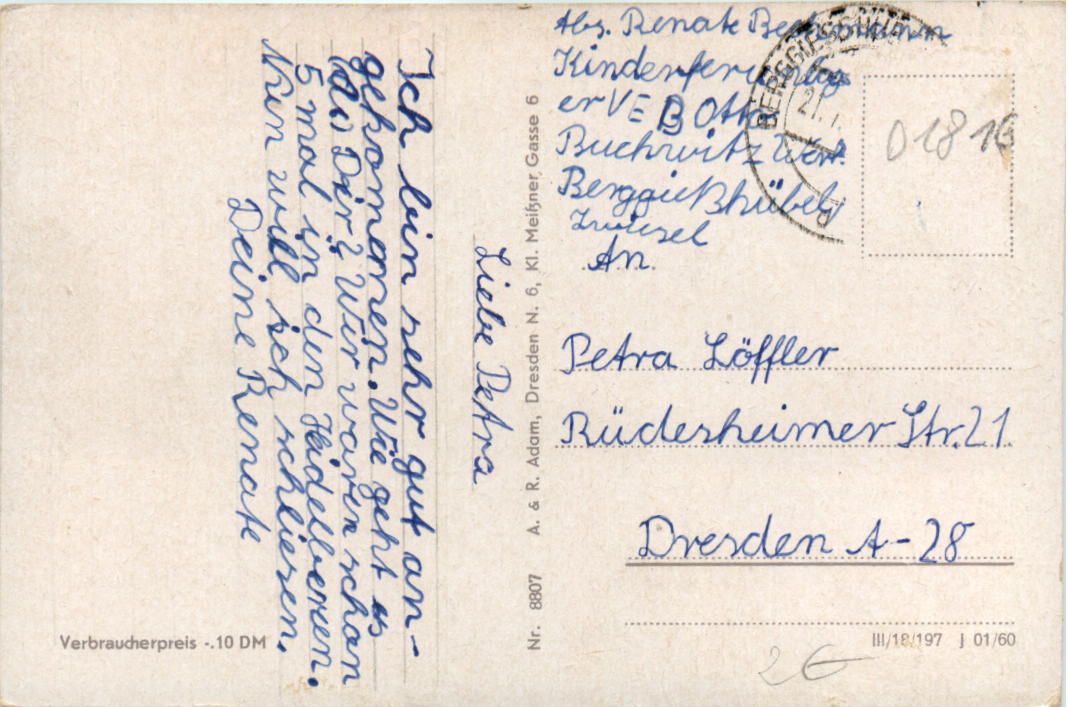 Liebe Petra
Ich bin sehr gut an-
gekommen. Wie geht es
das Dir? Wir waren schon
5 mal in den Heidelberen.
Nun will ich schliesen.
Deine Renate
Verbraucherpreis -.10 DM
Nr. 8807 A. & R. Adam, Dresden N. 6, Kl. Meißner Gasse 6
Abs. Renate Beckmann
Kinderferienlag
er VEB Otto
Buchwitz Werk
Berggießhübel
Zwiesel
An
BERGGIESSHÜBEL
21.7.
Petra Löffler
Rüdesheimer Str. 21.
Dresden A-28
III/18/197 J 01/60
01816
2€